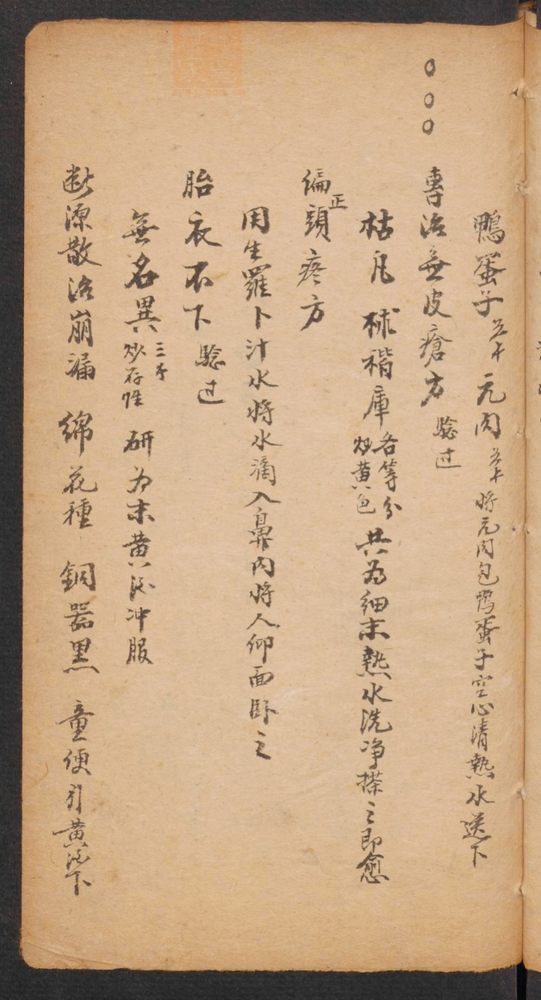 ○○○
鴨蛋子 元肉 將元肉包鴨蛋子空心清熱水送下
專治無皮瘡方 驗过
枯凡 秫稭庫 各等分炒黄色 共為細末熱水洗净搽之即愈
偏正頭疼方
用生羅卜汁水將水滴入鼻内將人仰面卧之
胎衣不下 驗过
無名異 三个炒存性 研为末黄酒冲服
断源散治崩漏 綿花種 銅器黑 童便引黄酒下